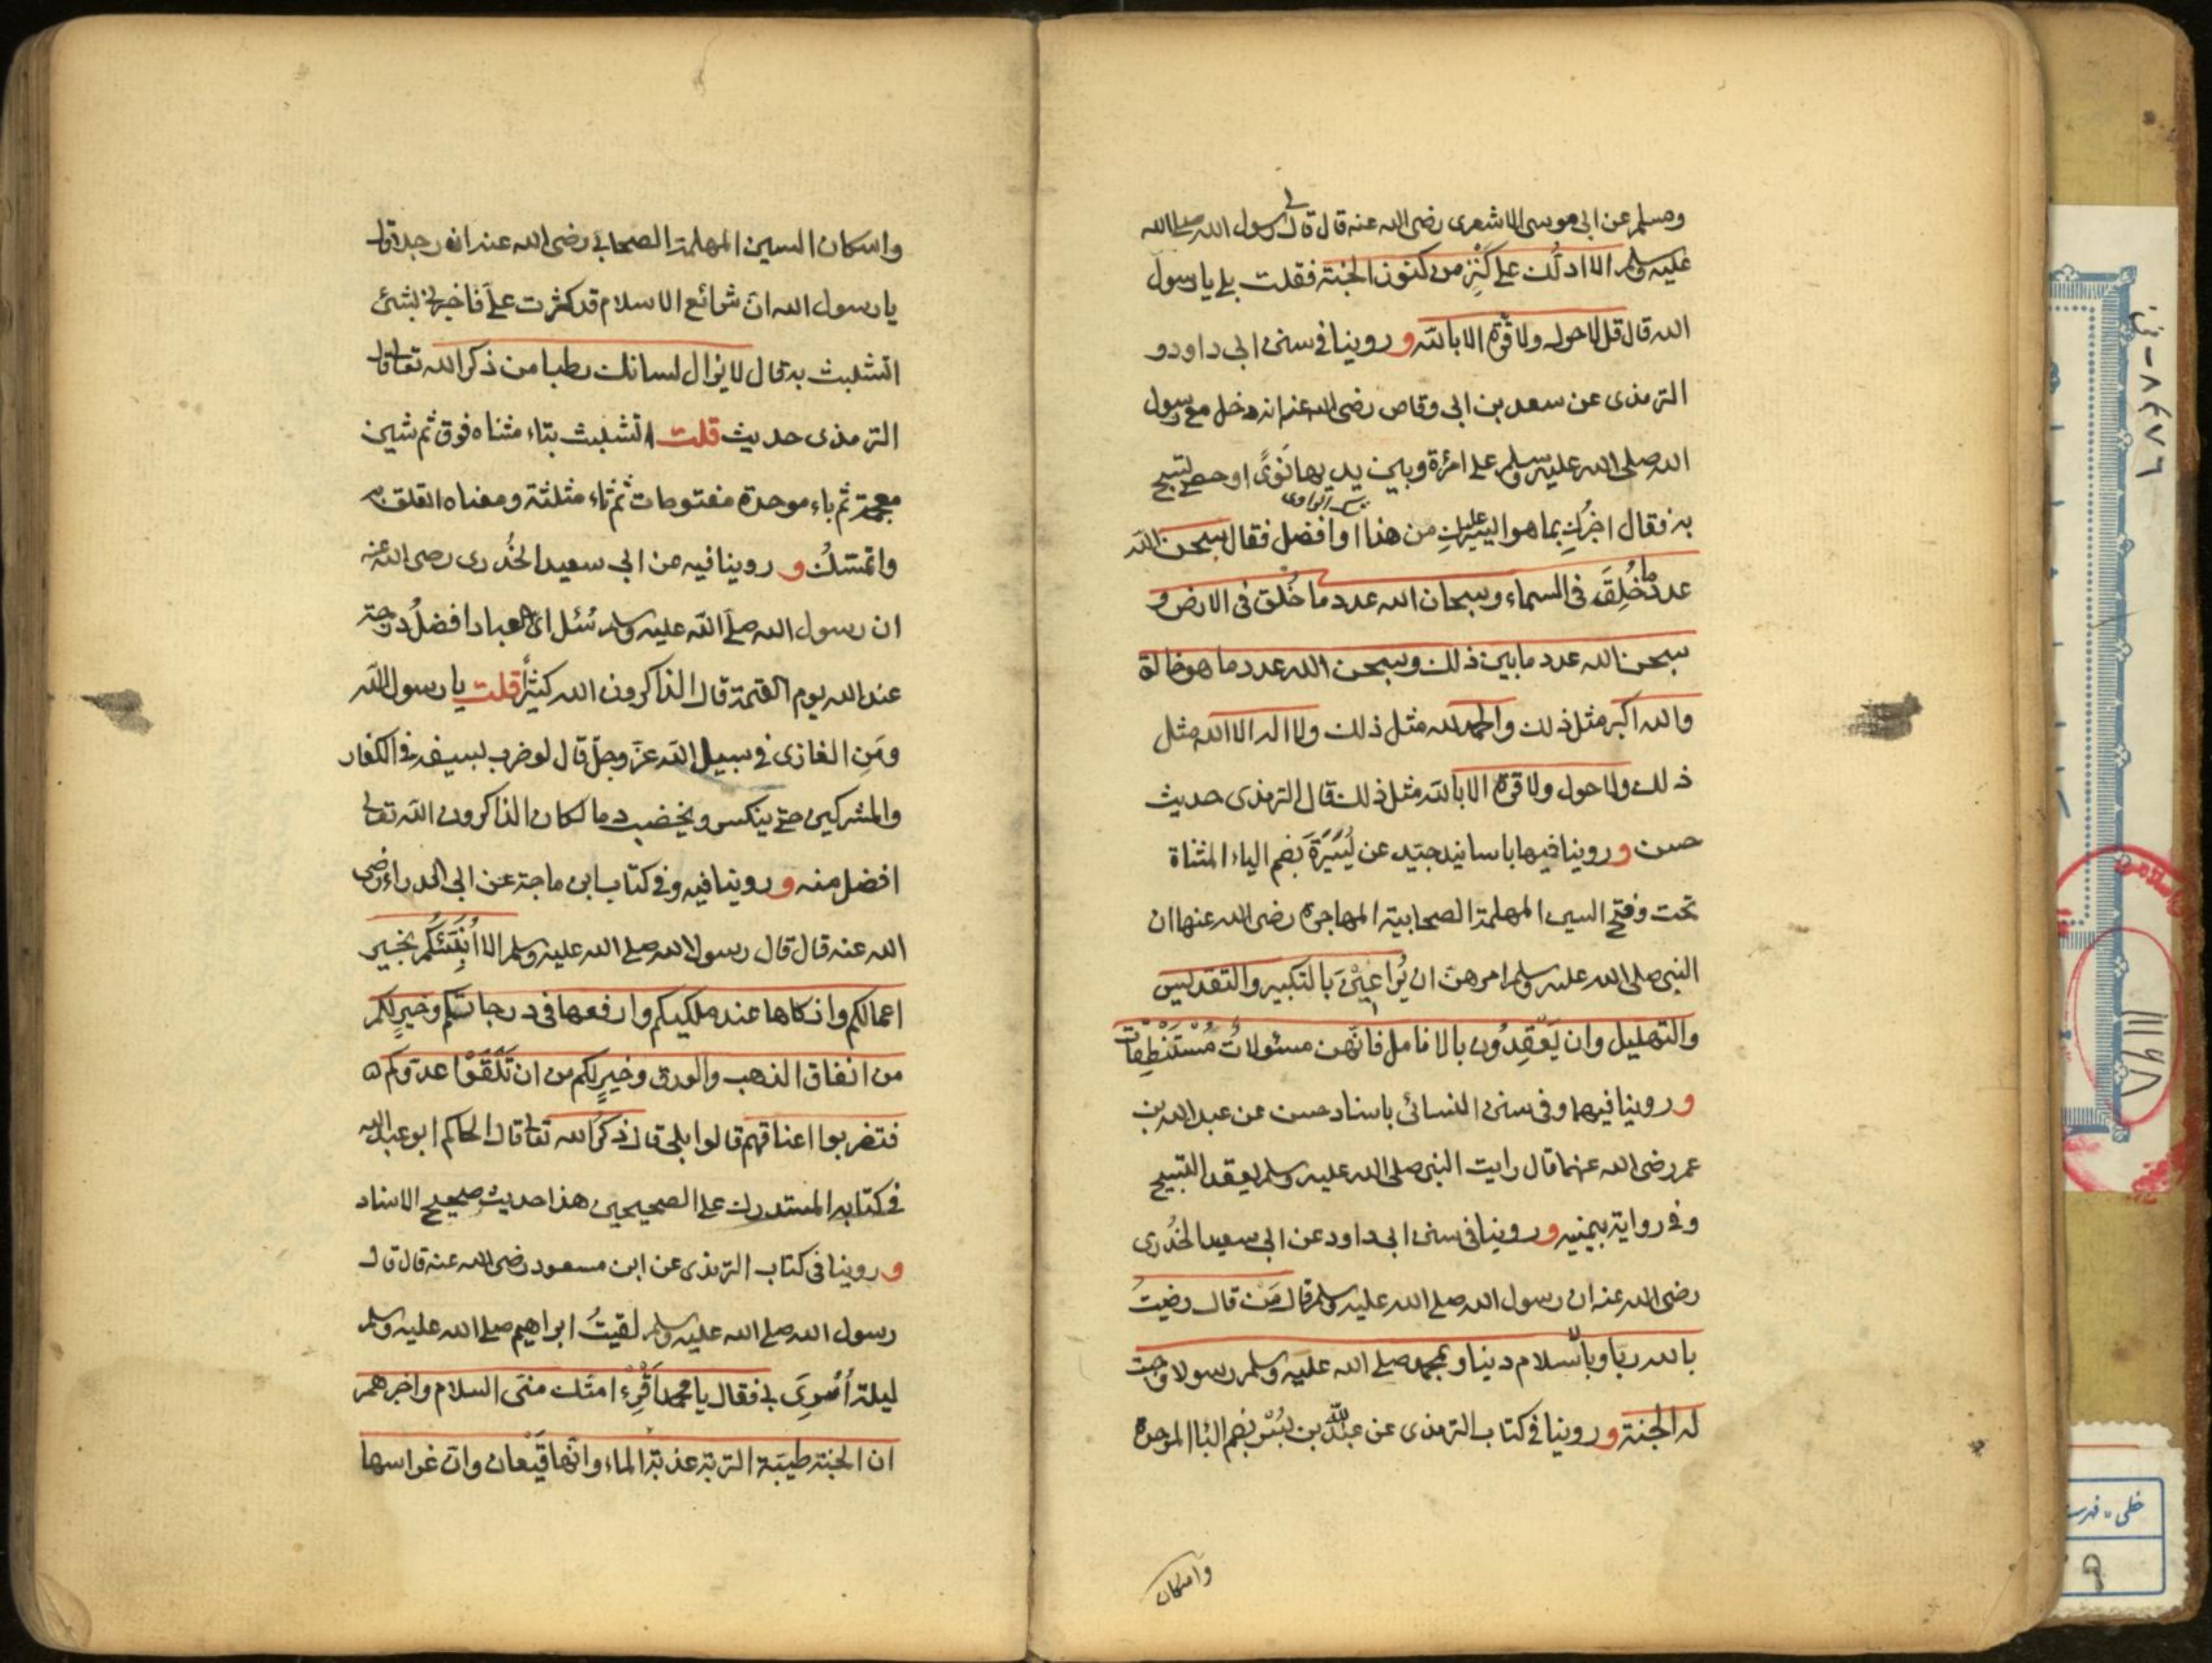 ومسلم عن ابى موسى الاشعرى رضى الله عنه قال قال لى رسول الله صلى الله
عليه وسلم الا ادلّك على كَنْزٍ من كنوز الجنة فقلت بلى يا رسول
الله قال قل لاحول ولا قُوّة الا بالله و روينا فى سنن ابى داود و
الترمذى عن سعد بن ابى وقاص رضى الله عنه انه دخل مع رسول
الله صلى الله عليه وسلم على امرءة وبين يديها نَوًى او حصى تسبح
به فقال اخبرُكِ بما هو ايسر عليكِ من هذا او افضل فقال سبحن الله
عدد ما خُلِقَ فى السماء وسبحان الله عدد ما خُلق فى الارض و
سبحن الله عدد ما بين ذلك وسبحن الله عدد ما هو خالق
والله اكبر مثل ذلك والحمد لله مثل ذلك ولا اله الا الله مثل
ذلك ولا حول ولا قوة الا بالله مثل ذلك قال الترمذى حديث
حسن و روينا فيهما باسانيد جيّد عن يُسَيْرَةَ بضم الياء المثناة
تحت وفتح السين المهلمة الصحابية المهاجرة رضى الله عنها ان
النبى صلى الله عليه وسلم امرهنّ ان يُراعِيْنَ بالتكبير والتقديس
والتهليل وان يَعْقِدُون بالانامل فانّهن مسئولاتٌ مُسْتَنْطِقات
و روينا فيهما وفى سنن النسائى باسناد حسن عن عبد الله بن
عمر رضى الله عنهما قال رايت النبى صلى الله عليه وسلم يعقد التسبيح
وفى رواية بيمينه و روينا فى سنن ابى داود عن ابى سعيد الخُدرى
رضى الله عنه ان رسول الله صلى الله عليه وسلم قال مَنْ قال رضيتُ
بالله ربّا وبالاسلام دينا وبمحمد صلى الله عليه وسلم رسولا وجبت
له الجنة و روينا فى كتاب الترمذى عن عبد الله بن بُسْر بضم البا الموحدة
واسكان
واسكان السين المهلمة الصحابى رضى الله عنه ان رجلا قال
يا رسول الله انّ شرائع الاسلام قد كثرت علىّ فاخبرنى بشئ
اتشبث به قال لا يزال لسانك رطبا من ذكر الله تعالى قال
الترمذى حديث قلت اتشبث بتاء مثناه فوق ثم شين
معجمة ثم باء موحدة مفتوحات ثم ثاء مثلثة ومعناه اتعلق به
واتمسّكُ و روينا فيه عن ابى سعيد الخُدرى رضى الله عنه
ان رسول الله صلى الله عليه وسلم سُئل اىّ العباد افضلُ درجة
عند الله يوم القيمة قال الذاكرون الله كثيرًا قلت يا رسول الله
ومَنِ الغازى فى سبيل الله عزّ وجلّ قال لو ضرب بسيفه فى الكفار
والمشركين حتى ينكسر ويخضب دما لكان الذاكرون الله تعالى
افضل منه و روينا فيه وفى كتاب ابن ماجة عن ابى الدرداء رضى
الله عنه قال قال رسول الله صلى الله عليه وسلم الا اُنَبِّئكُم بخير
اعمالكم وازكاها عند مليككم وارفعها فى درجاتكم وخيرٍ لكم
من انفاق الذهب والورق وخيرٍ لكم من ان تَلْقَوْا عدوّكم
فتضربوا اعناقهم قالوا بلى قال ذكرُ الله تعالى قال الحاكم ابو عبد الله
فى كتابه المستدرك على الصحيحين هذا حديث صحيح الاسناد
و روينا فى كتاب الترمذى عن ابن مسعود رضى الله عنه قال قال
رسول الله صلى الله عليه وسلم لقيتُ ابراهيم صلى الله عليه وسلم
ليلة اُسْرِىَ بى فقال يا محمد اَقْرِءْ امتك منّى السلام واخبرهم
ان الجنة طيبة التربة عذبة الماء وانّها قيعان وانّ غراسها
٨٤٧٦ - ف
خطى - فهرست